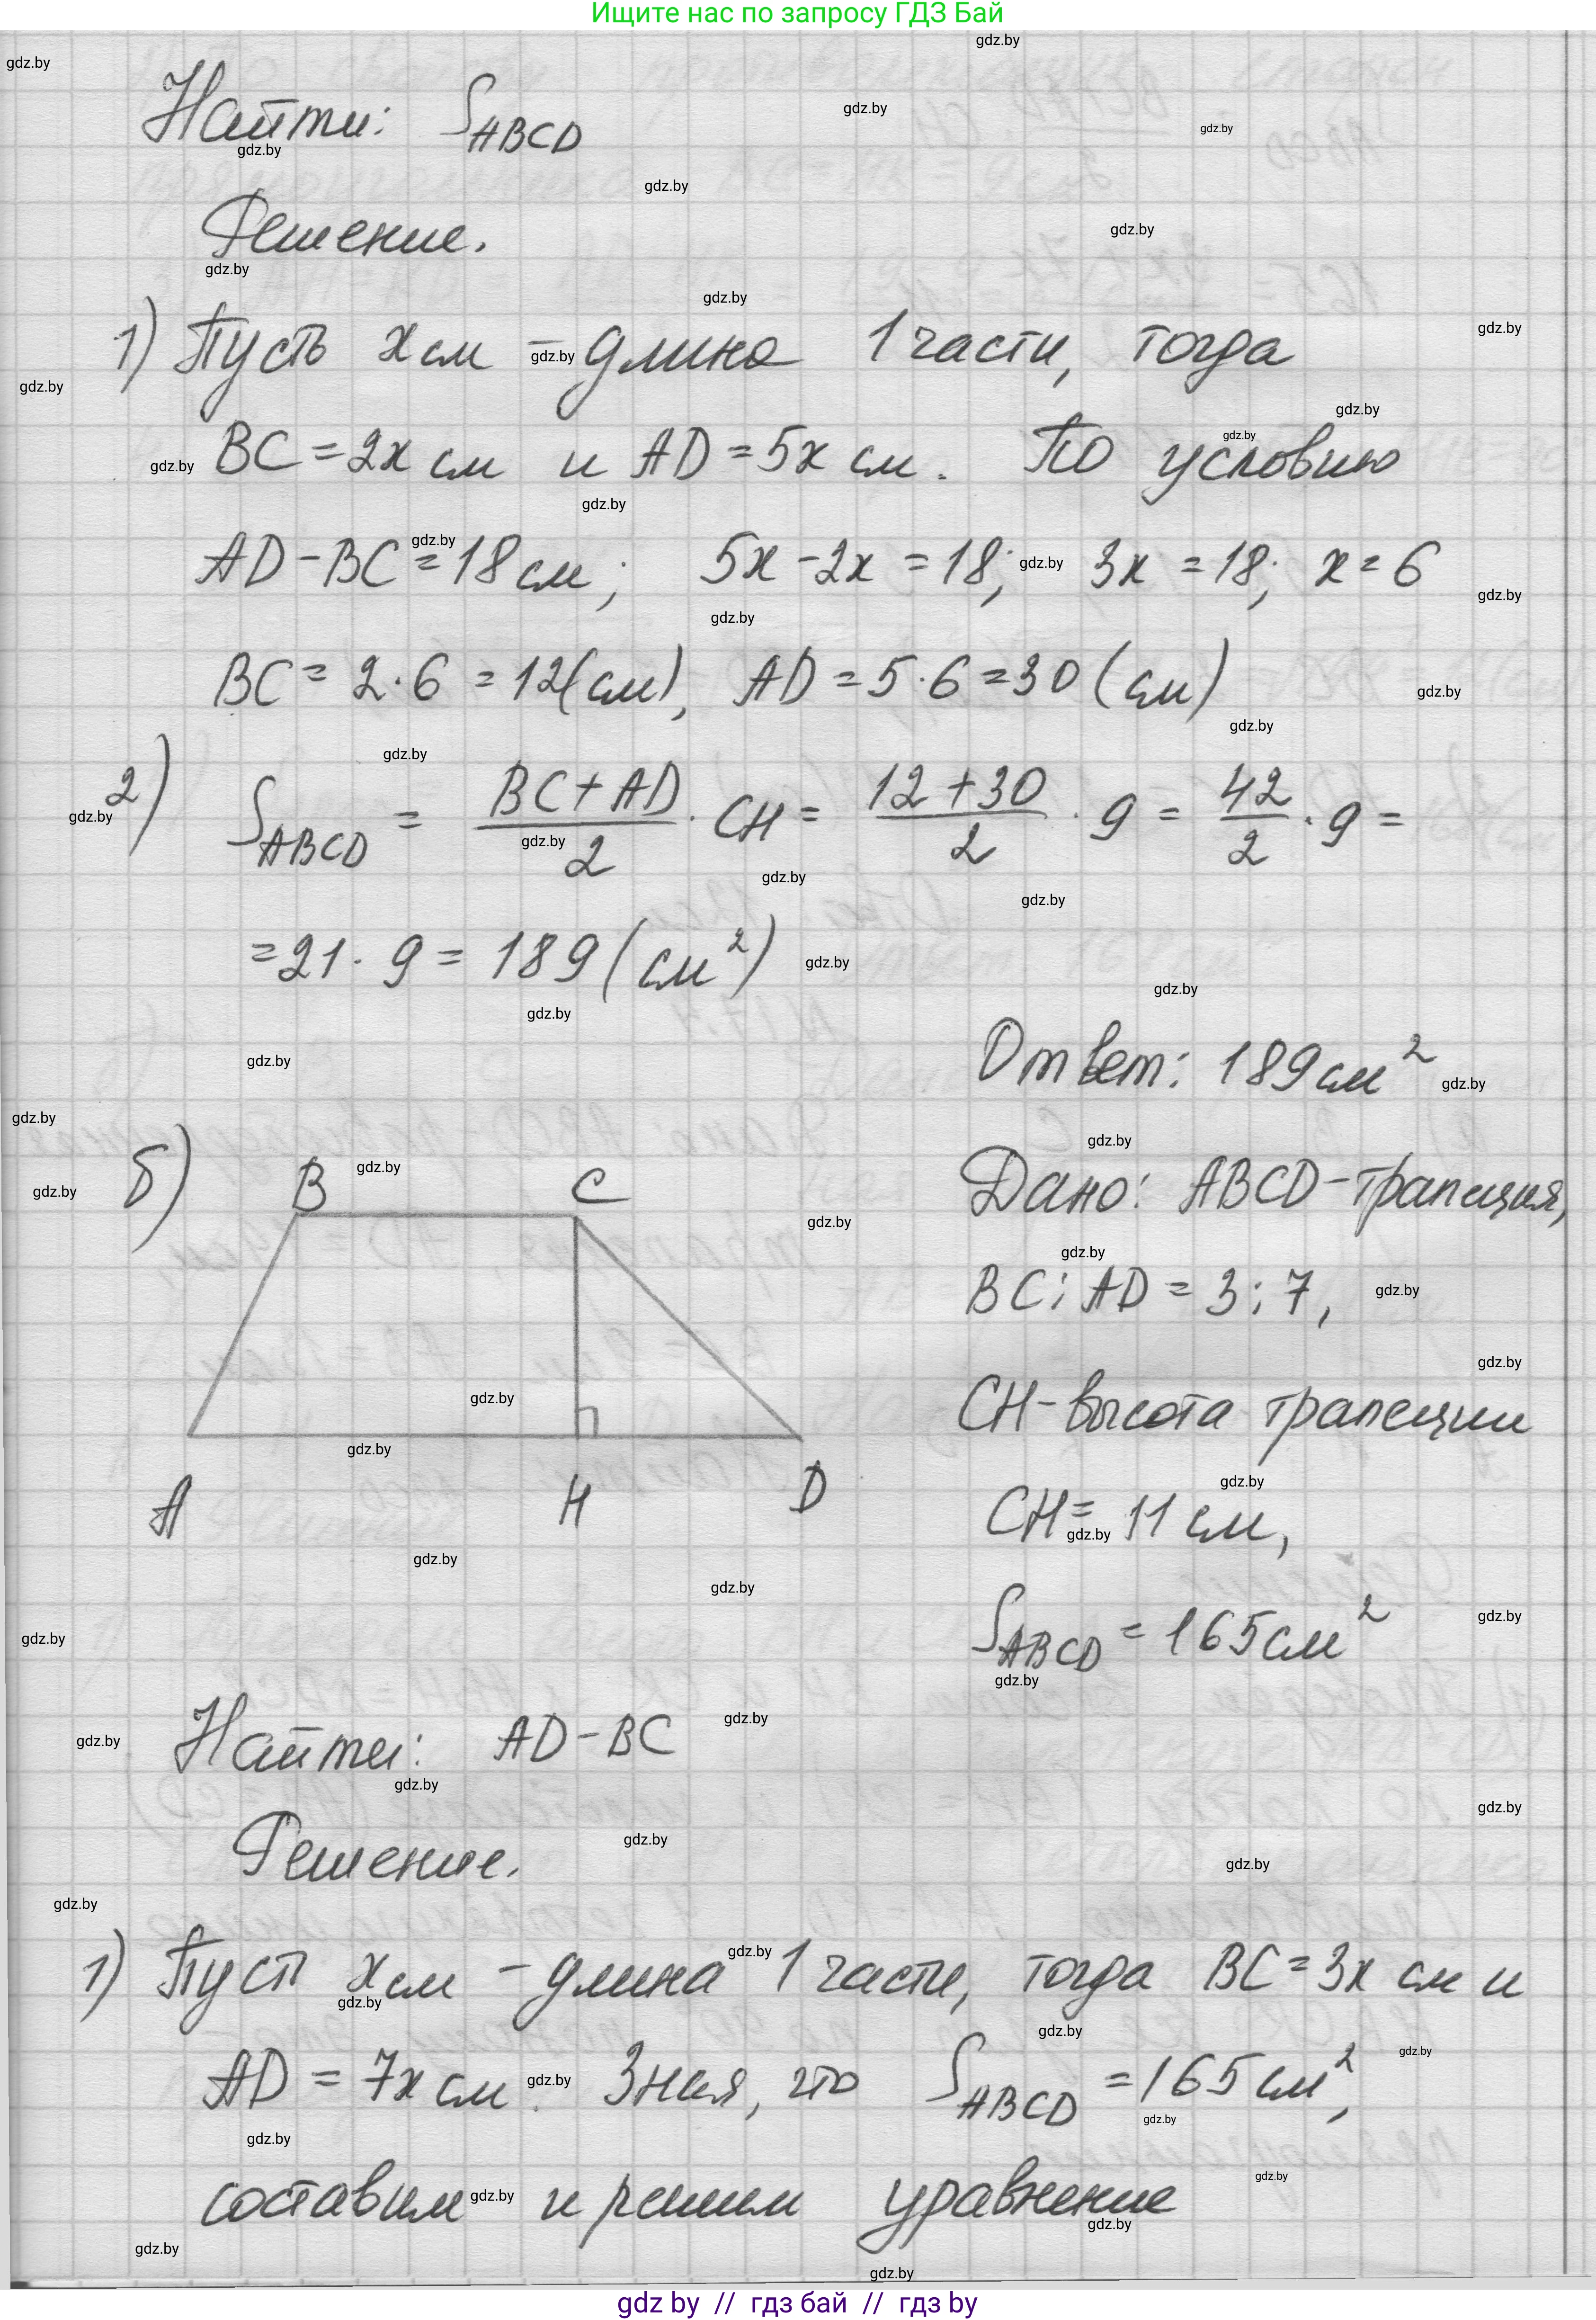 Ищите нас по запросу ГДЗ Бай
Найти: S_ABCD
Решение.
1) Пусть x см – длина 1 части, тогда
BC = 2x см и AD = 5x см. По условию
AD – BC = 18 см; 5x – 2x = 18; 3x = 18; x = 6
BC = 2·6 = 12(см), AD = 5·6 = 30 (см)
2) S_ABCD = (BC + AD)/2 · CH = (12 + 30)/2 · 9 = 42/2 · 9 =
= 21 · 9 = 189 (см²)
Ответ: 189 см²
б) B C
A H D
Дано: ABCD – трапеция,
BC : AD = 3 : 7,
CH – высота трапеции
CH = 11 см,
S_ABCD = 165 см²
Найти: AD – BC
Решение.
1) Пуст x см – длина 1 части, тогда BC = 3x см и
AD = 7x см. Зная, что S_ABCD = 165 см²,
составим и решим уравнение
gdz by // гдз бай // гдз by